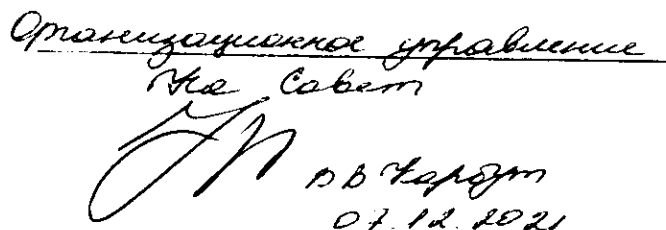 Организационное управление
На Совет
В В Карбут
07.12.2021